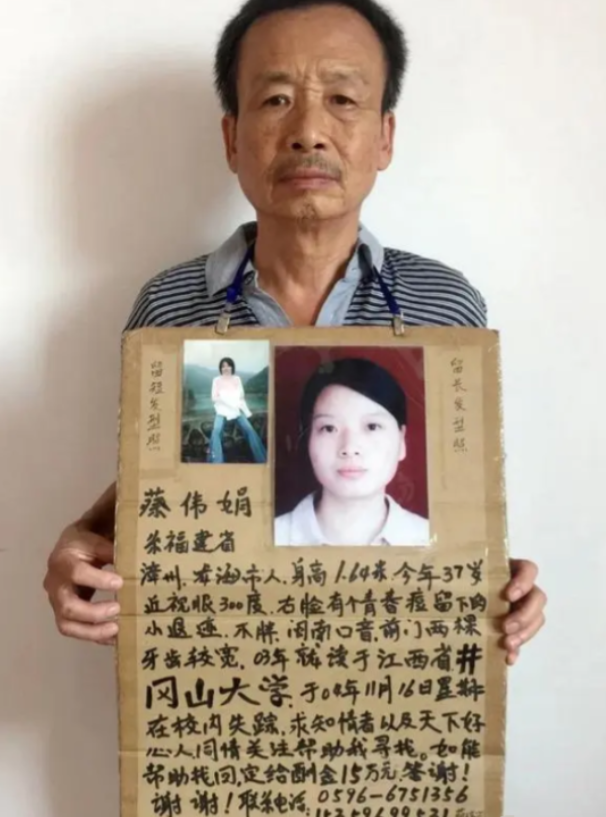 留短发型照
留长发型照
蔡伟娟
福建省
漳州.龙海市人.身高1.64米.今年37岁
近视眼300度.右脸有个青春痘留下的
小退迹.不胖.闽南口音.前门两棵
牙齿较宽.03年就读于江西省井
冈山大学.于04年11月16日星期
在校内失踪.求知情者以及天下好
心人.同情关注帮助我寻找。如能
帮助找回定给酬金15万元.答谢!
谢谢!联系电话:0596-6751356